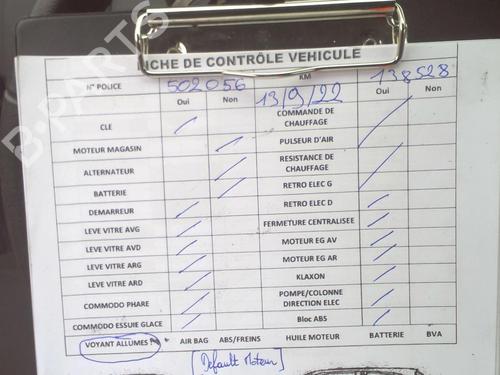 FICHE DE CONTRÔLE VEHICULE
N° POLICE 502056 KM 138528
Oui Non 13/9/22 Oui Non
CLE COMMANDE DE CHAUFFAGE
MOTEUR MAGASIN PULSEUR D'AIR
ALTERNATEUR RESISTANCE DE CHAUFFAGE
BATTERIE RETRO ELEC G
DEMARREUR RETRO ELEC D
LEVE VITRE AVG FERMETURE CENTRALISEE
LEVE VITRE AVD MOTEUR EG AV
LEVE VITRE ARG MOTEUR EG AR
LEVE VITRE ARD KLAXON
COMMODO PHARE POMPE/COLONNE DIRECTION ELEC
COMMODO ESSUIE GLACE Bloc ABS
VOYANT ALLUMES AIR BAG ABS/FREINS HUILE MOTEUR BATTERIE BVA
[Default Moteur]
B-PARTS